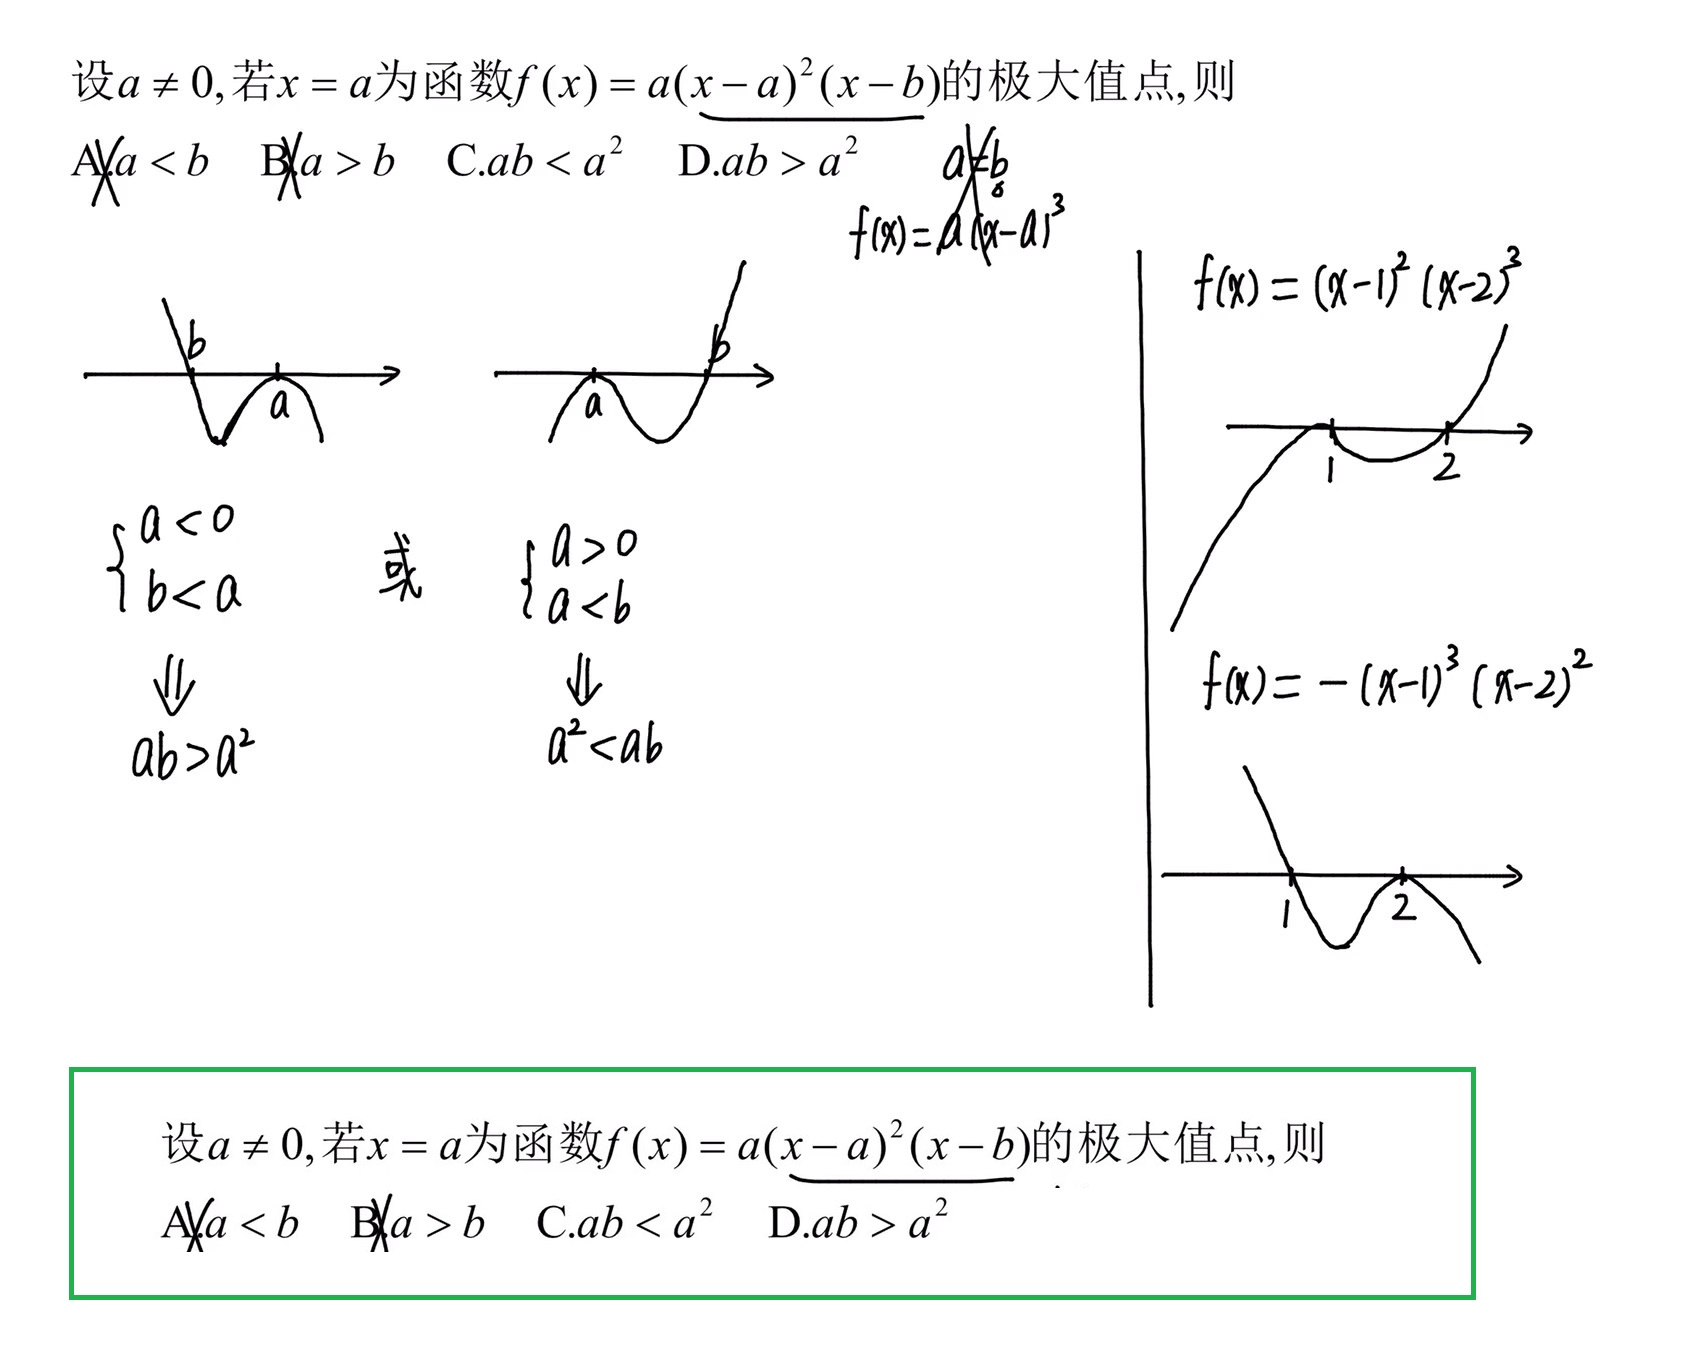 设a ≠ 0,若x = a为函数f(x) = a(x−a)²(x−b)的极大值点,则
A.a < b B.a > b C.ab < a² D.ab > a²
a≠b
f(x)=a(x-a)³
b
a
a
b
{a<0
b<a
或
{a>0
a<b
⇓
⇓
ab>a²
a²<ab
f(x)=(x-1)²(x-2)³
1
2
f(x)=-(x-1)³(x-2)²
1
2
设a ≠ 0,若x = a为函数f(x) = a(x−a)²(x−b)的极大值点,则
A.a < b B.a > b C.ab < a² D.ab > a²